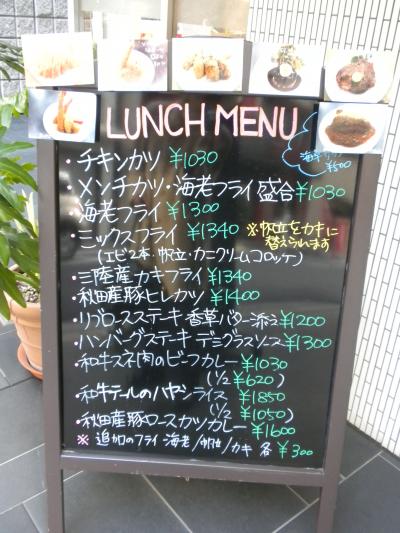 LUNCH MENU
・チキンカツ ¥1030
・メンチカツ・海老フライ盛合 ¥1030
・海老フライ ¥1300
・ミックスフライ ¥1340 ※帆立をカキに
替えられます
(エビ2本・帆立・カニクリームコロッケ)
・三陸産カキフライ ¥1340
・秋田産豚ヒレカツ ¥1400
・リブロースステーキ 香草バター添え ¥1200
・ハンバーグステーキ デミグラスソース ¥1300
・和牛スネ肉のビーフカレー ¥1030
(1/2 ¥620)
・和牛テールのハヤシライス ¥1850
(1/2 ¥1050)
・秋田産豚ロースカツカレー ¥1600
※ 追加のフライ 海老/帆立/カキ 各 ¥300
¥500